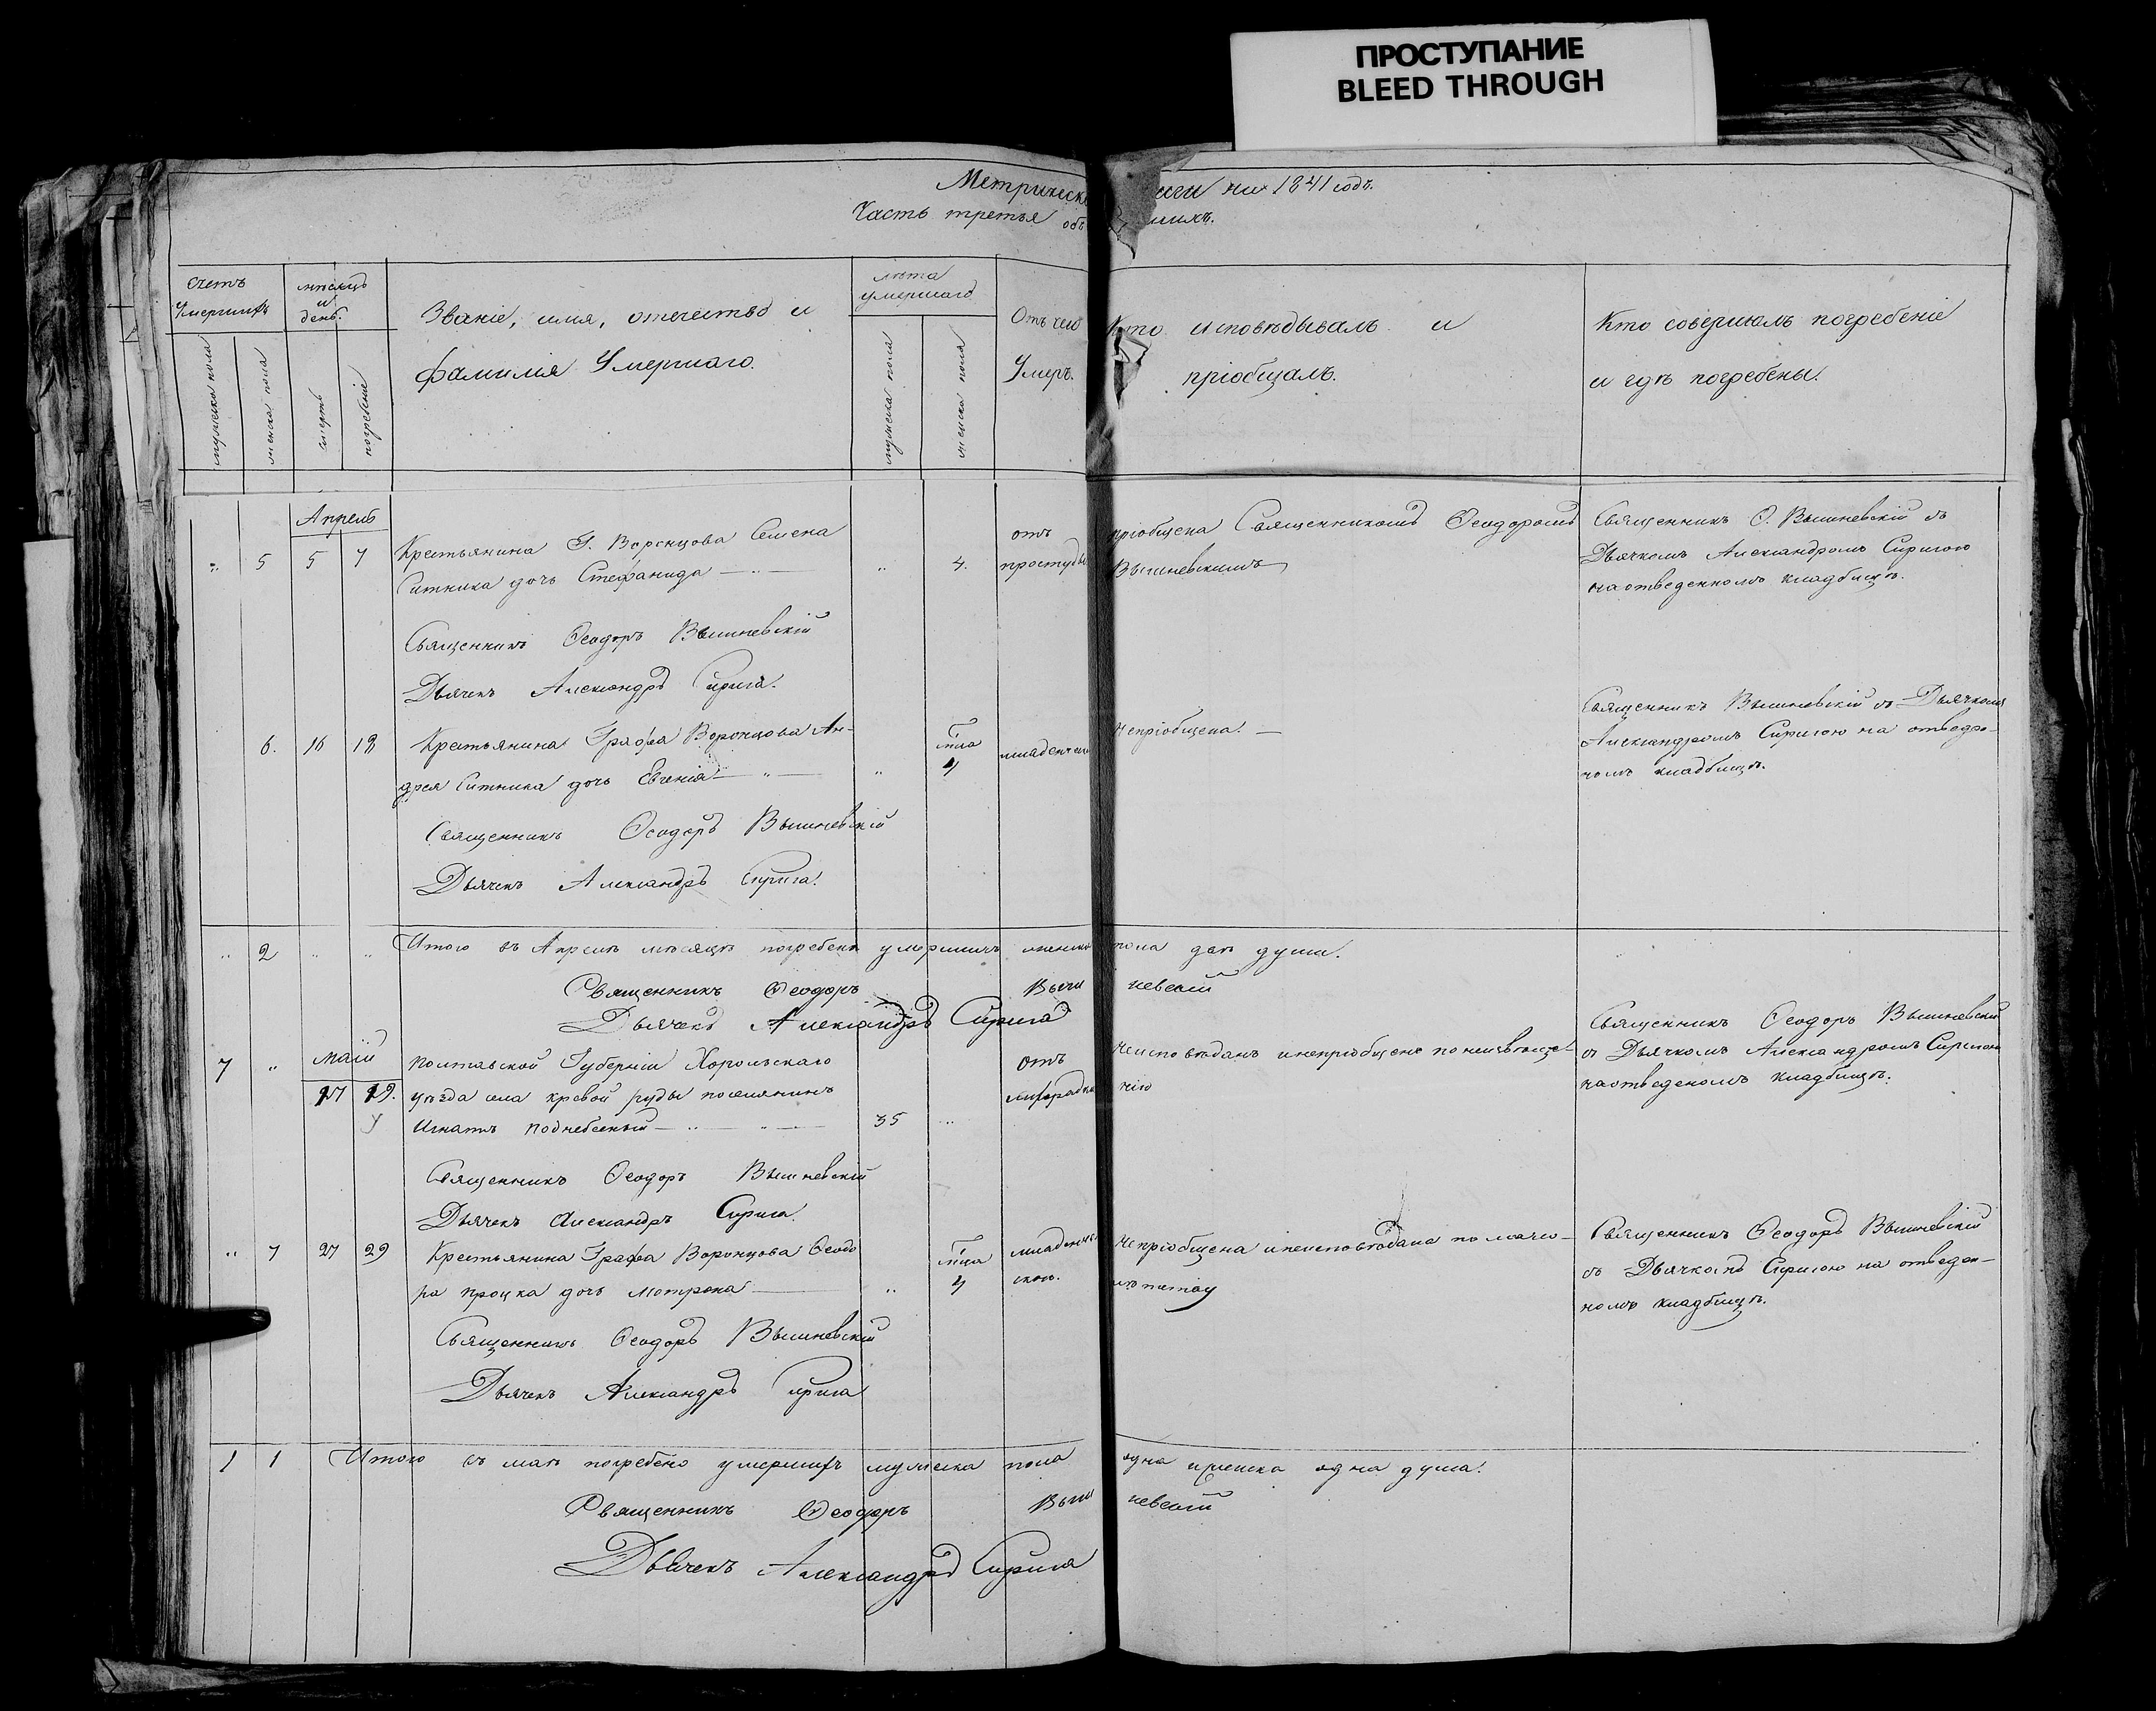 ПРОСТУПАНИЕ
BLEED THROUGH
Метрическ иги на 1841 годъ.
Часть третья объ шихъ.
Счетъ Умершихъ
мѣсяцъ и день.
Званіе, имя, отечество и фамилія Умершаго.
лѣта умершаго
Отъ чего Умеръ.
Кто исповѣдывалъ и пріобщалъ.
Кто совершалъ погребеніе и гдѣ погребены.
мужеска пола
женска пола
смерть
погребеніе
мужеска пола
женска пола
Апрель
5 5 7 Крестьянина Г. Воронцова Семена
Ситника дочь Стефанида 4.
отъ простуды
пріобщена Священникомъ Ѳеодоромъ
Вышневскимъ
Священникъ Ѳ. Вышневскій съ
Дьячкомъ Александромъ Сиригою
на отведенномъ кладбищѣ.
Священникъ Ѳеодоръ Вышневскій
Дьячекъ Александръ Сирига.
6. 16 18 Крестьянина Графа Воронцова Ан-
дрея Ситника дочь Евгенія
мца 4
младенческ
Непріобщена.
Священникъ Вышневскій съ Дьячкомъ
Александромъ Сиригою на отведе-
номъ кладбищѣ.
Священникъ Ѳеодоръ Вышневскій
Дьячекъ Александръ Сирига.
2 Итого въ Апрелѣ мѣсяцѣ погребено умершихъ женска пола двѣ души.
Священникъ Ѳеодоръ Выш невскій
Дьячекъ Александръ Сирига
7 Маій
27 29. Полтавской Губерніи Хорольскаго
уѣзда села кревой руды поселянинъ
Игнатъ Поднебесный 35
отъ лихорадки
Неисповѣданъ и непріобщенъ по неизвѣще-
нію
Священникъ Ѳеодоръ Вышневскій
съ Дьячкомъ Александромъ Сиригою
на отведеномъ кладбищѣ.
Священникъ Ѳеодоръ Вышневскій
Дьячекъ Александръ Сирига.
7 27 29 Крестьянина Графа Воронцова Ѳеодо
ра Процка дочь Мотрона
мца 4
младенче
скою.
Непріобщена и неисповѣдана по мало-
лѣтству
Священникъ Ѳеодоръ Вышневскій
съ Дьячкомъ Сиригою на отведен-
номъ кладбищѣ.
Священникъ Ѳеодоръ Вышневскій
Дьячекъ Александръ Сирига
1 1 Итого въ маѣ погребено умершихъ мужеска пола одна и женска одна душа.
Священникъ Ѳеодоръ Выш невскій
Дьячекъ Александръ Сирига